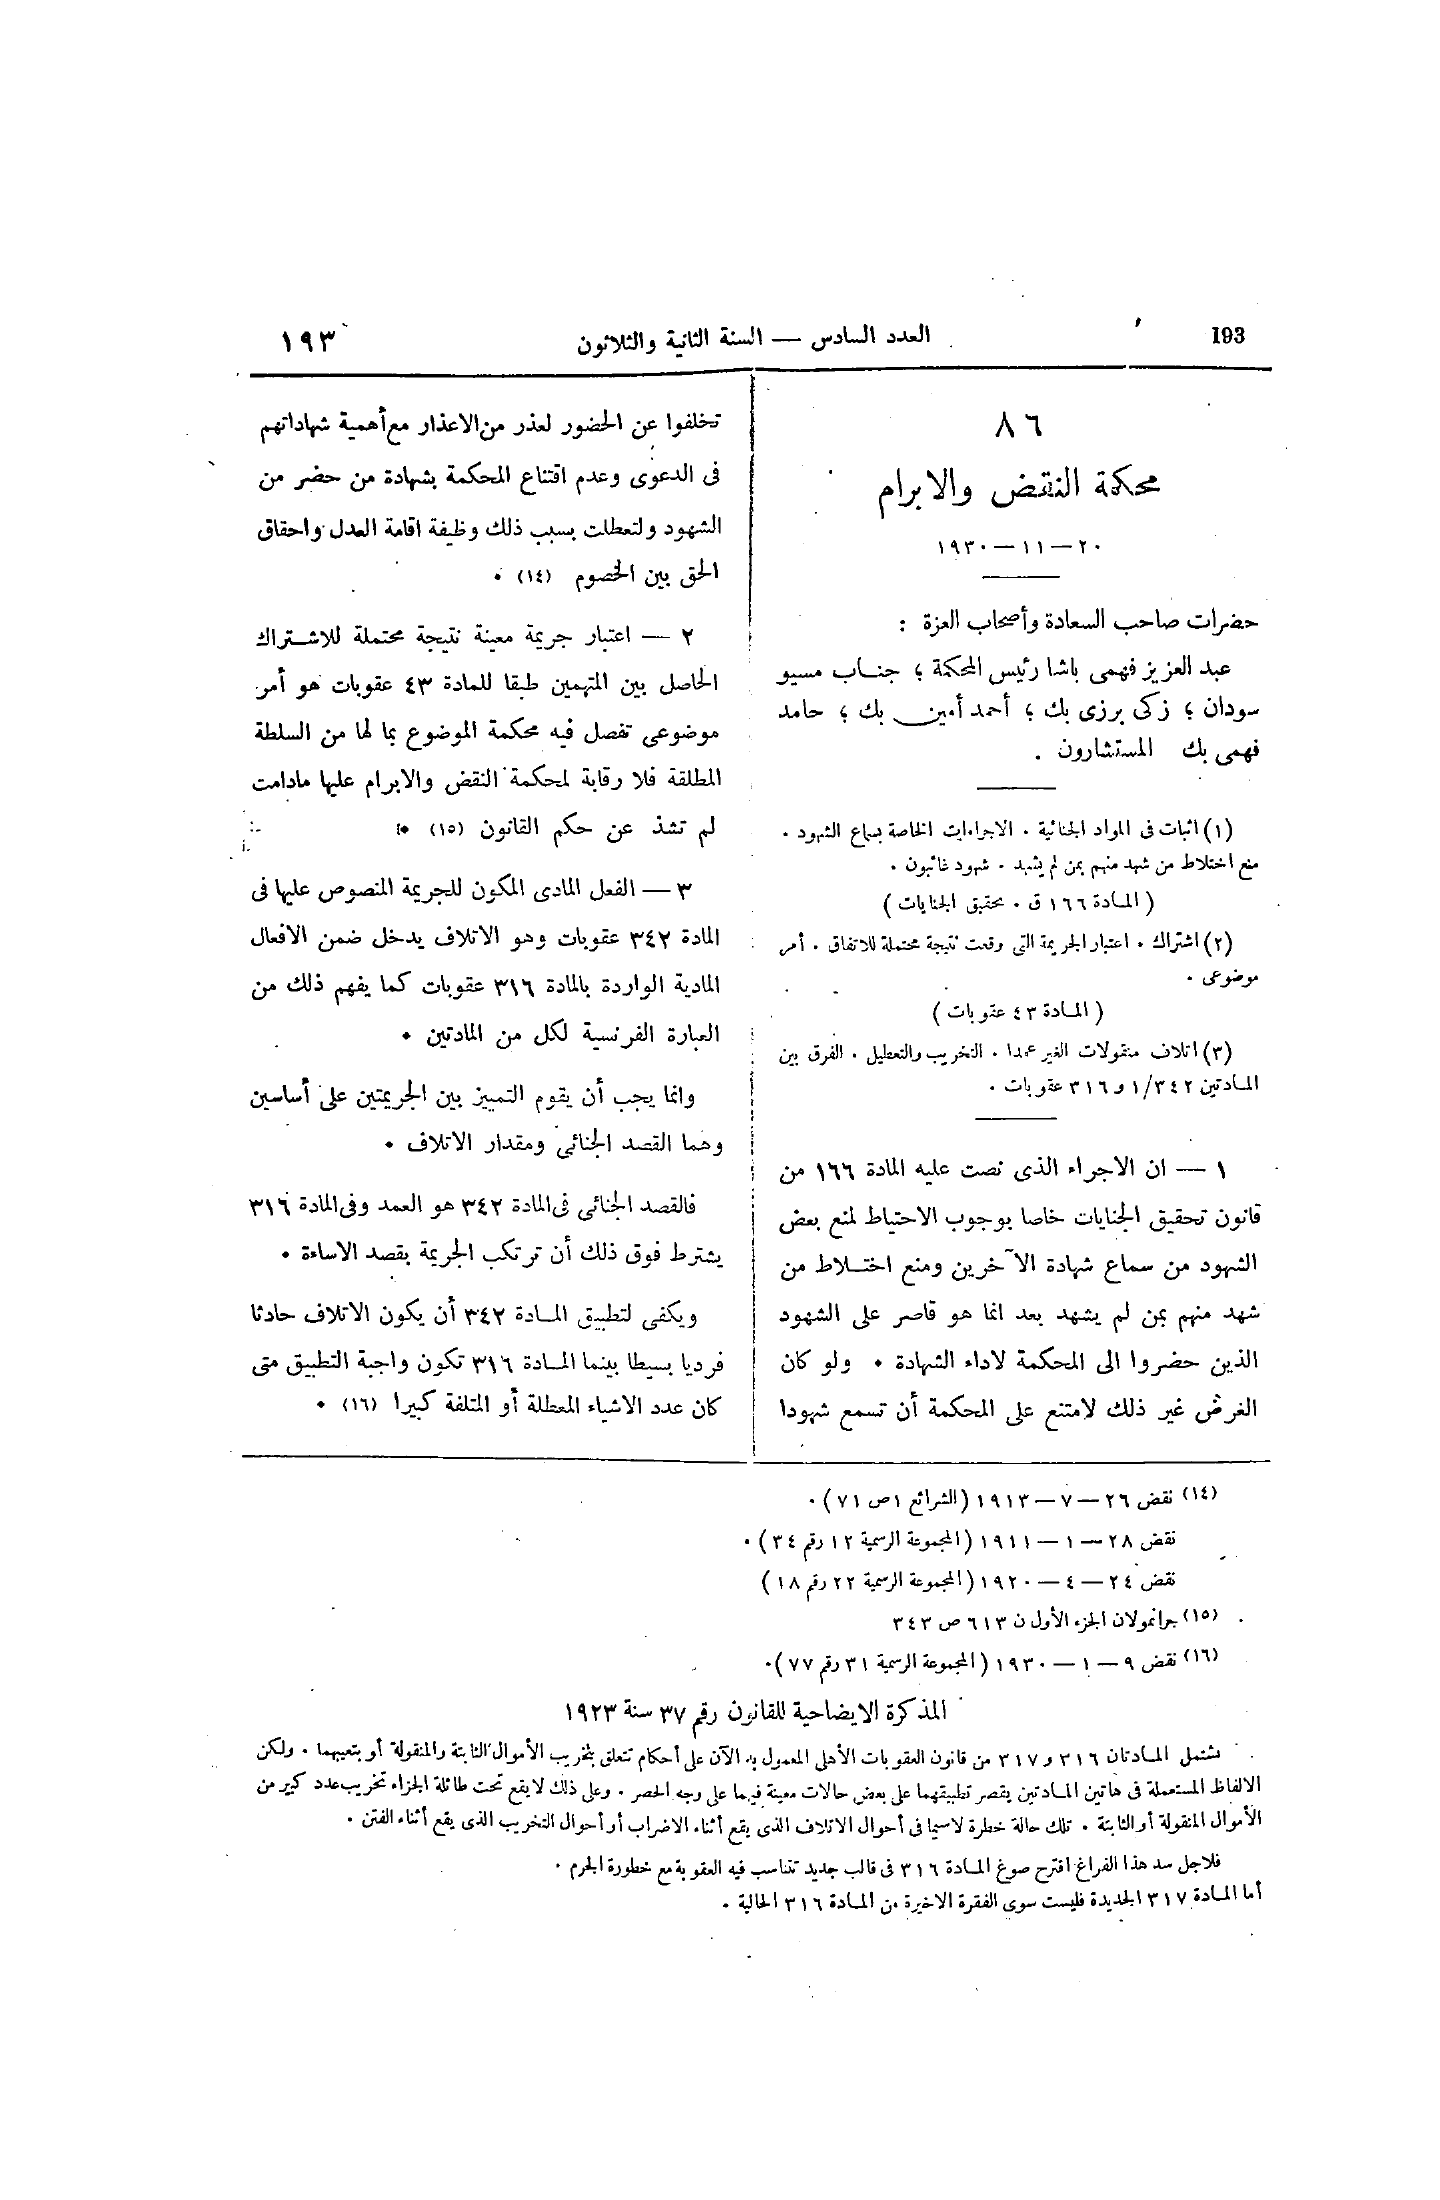 193
العدد السادس — السنة الثانية والثلاثون
١٩٣
٨٦
محكمة النقض والابرام
٢٠ — ١١ — ١٩٣٠
حضرات صاحب السعادة وأصحاب العزة :
عبد العزيز فهمى باشا رئيس المحكمة ؛ جناب مسيو
سودان ؛ زكى برزى بك ؛ أحمد أمين بك ؛ حامد
فهمى بك المستشارون .
(١) اثبات فى المواد الجنائية . الاجراءات الخاصة بسماع الشهود .
منع اختلاط من شهد منهم بمن لم يشهد . شهود غائبون .
( المادة ١٦٦ ق . تحقيق الجنايات )
(٢) اشتراك . اعتبار الجريمة التى وقعت نتيجة محتملة للاتفاق . أمر
موضوعى .
( المادة ٤٣ عقوبات )
(٣) اتلاف منقولات الغير عمدا . التخريب والتعطيل . الفرق بين
المادتين ٣٤٢/١ و ٣١٦ عقوبات .
١ — ان الاجراء الذى نصت عليه المادة ١٦٦ من
قانون تحقيق الجنايات خاصا بوجوب الاحتياط لمنع بعض
الشهود من سماع شهادة الآخرين ومنع اختلاط من
شهد منهم بمن لم يشهد بعد انما هو قاصر على الشهود
الذين حضروا الى المحكمة لاداء الشهادة . ولو كان
الغرض غير ذلك لامتنع على المحكمة أن تسمع شهودا
تخلفوا عن الحضور لعذر من الاعذار مع أهمية شهاداتهم
فى الدعوى وعدم اقتناع المحكمة بشهادة من حضر من
الشهود ولتعطلت بسبب ذلك وظيفة اقامة العدل واحقاق
الحق بين الخصوم (١٤) .
٢ — اعتبار جريمة معينة نتيجة محتملة للاشتراك
الحاصل بين المتهمين طبقا للمادة ٤٣ عقوبات هو أمر
موضوعى تفصل فيه محكمة الموضوع بما لها من السلطة
المطلقة فلا رقابة لمحكمة النقض والابرام عليها مادامت
لم تشذ عن حكم القانون (١٥) .
٣ — الفعل المادى المكون للجريمة المنصوص عليها فى
المادة ٣٤٢ عقوبات وهو الاتلاف يدخل ضمن الافعال
المادية الواردة بالمادة ٣١٦ عقوبات كما يفهم ذلك من
العبارة الفرنسية لكل من المادتين .
وانما يجب أن يقوم التمييز بين الجريمتين على أساسين
وهما القصد الجنائى ومقدار الاتلاف .
فالقصد الجنائى فى المادة ٣٤٢ هو العمد وفى المادة ٣١٦
يشترط فوق ذلك أن ترتكب الجريمة بقصد الاساءة .
ويكفى لتطبيق المادة ٣٤٢ أن يكون الاتلاف حادثا
فرديا بسيطا بينما المادة ٣١٦ تكون واجبة التطبيق متى
كان عدد الاشياء المعطلة أو المتلفة كبيرا (١٦) .
(١٤) نقض ٢٦ — ٧ — ١٩١٣ ( الشرائع ١ ص ٧١ ) .
نقض ٢٨ — ١ — ١٩١١ ( المجموعة الرسمية ١٢ رقم ٣٤ ) .
نقض ٢٤ — ٤ — ١٩٢٠ ( المجموعة الرسمية ٢٢ رقم ١٨ )
(١٥) جرانمولان الجزء الأول ن ٦١٣ ص ٣٤٣
(١٦) نقض ٩ — ١ — ١٩٣٠ ( المجموعة الرسمية ٣١ رقم ٧٧ ) .
المذكرة الايضاحية للقانون رقم ٣٧ سنة ١٩٢٣
تشتمل المادتان ٣١٦ و ٣١٧ من قانون العقوبات الأهلى المعمول به الآن على أحكام تتعلق بتخريب الأموال الثابتة والمنقولة أو بتعييبهما . ولكن
الالفاظ المستعملة فى هاتين المادتين يقصر تطبيقهما على بعض حالات معينة فيهما على وجه الحصر . وعلى ذلك لا يقع تحت طائلة الجزاء تخريب عدد كبير من
الأموال المنقولة أو الثابتة . تلك حالة خطرة لاسيما فى أحوال الاتلاف الذى يقع أثناء الاضراب أو أحوال التخريب الذى يقع أثناء الفتن .
فلاجل سد هذا الفراغ اقترح صوغ المادة ٣١٦ فى قالب جديد تتناسب فيه العقوبة مع خطورة الجرم .
أما المادة ٣١٧ الجديدة فليست سوى الفقرة الاخيرة من المادة ٣١٦ الحالية .